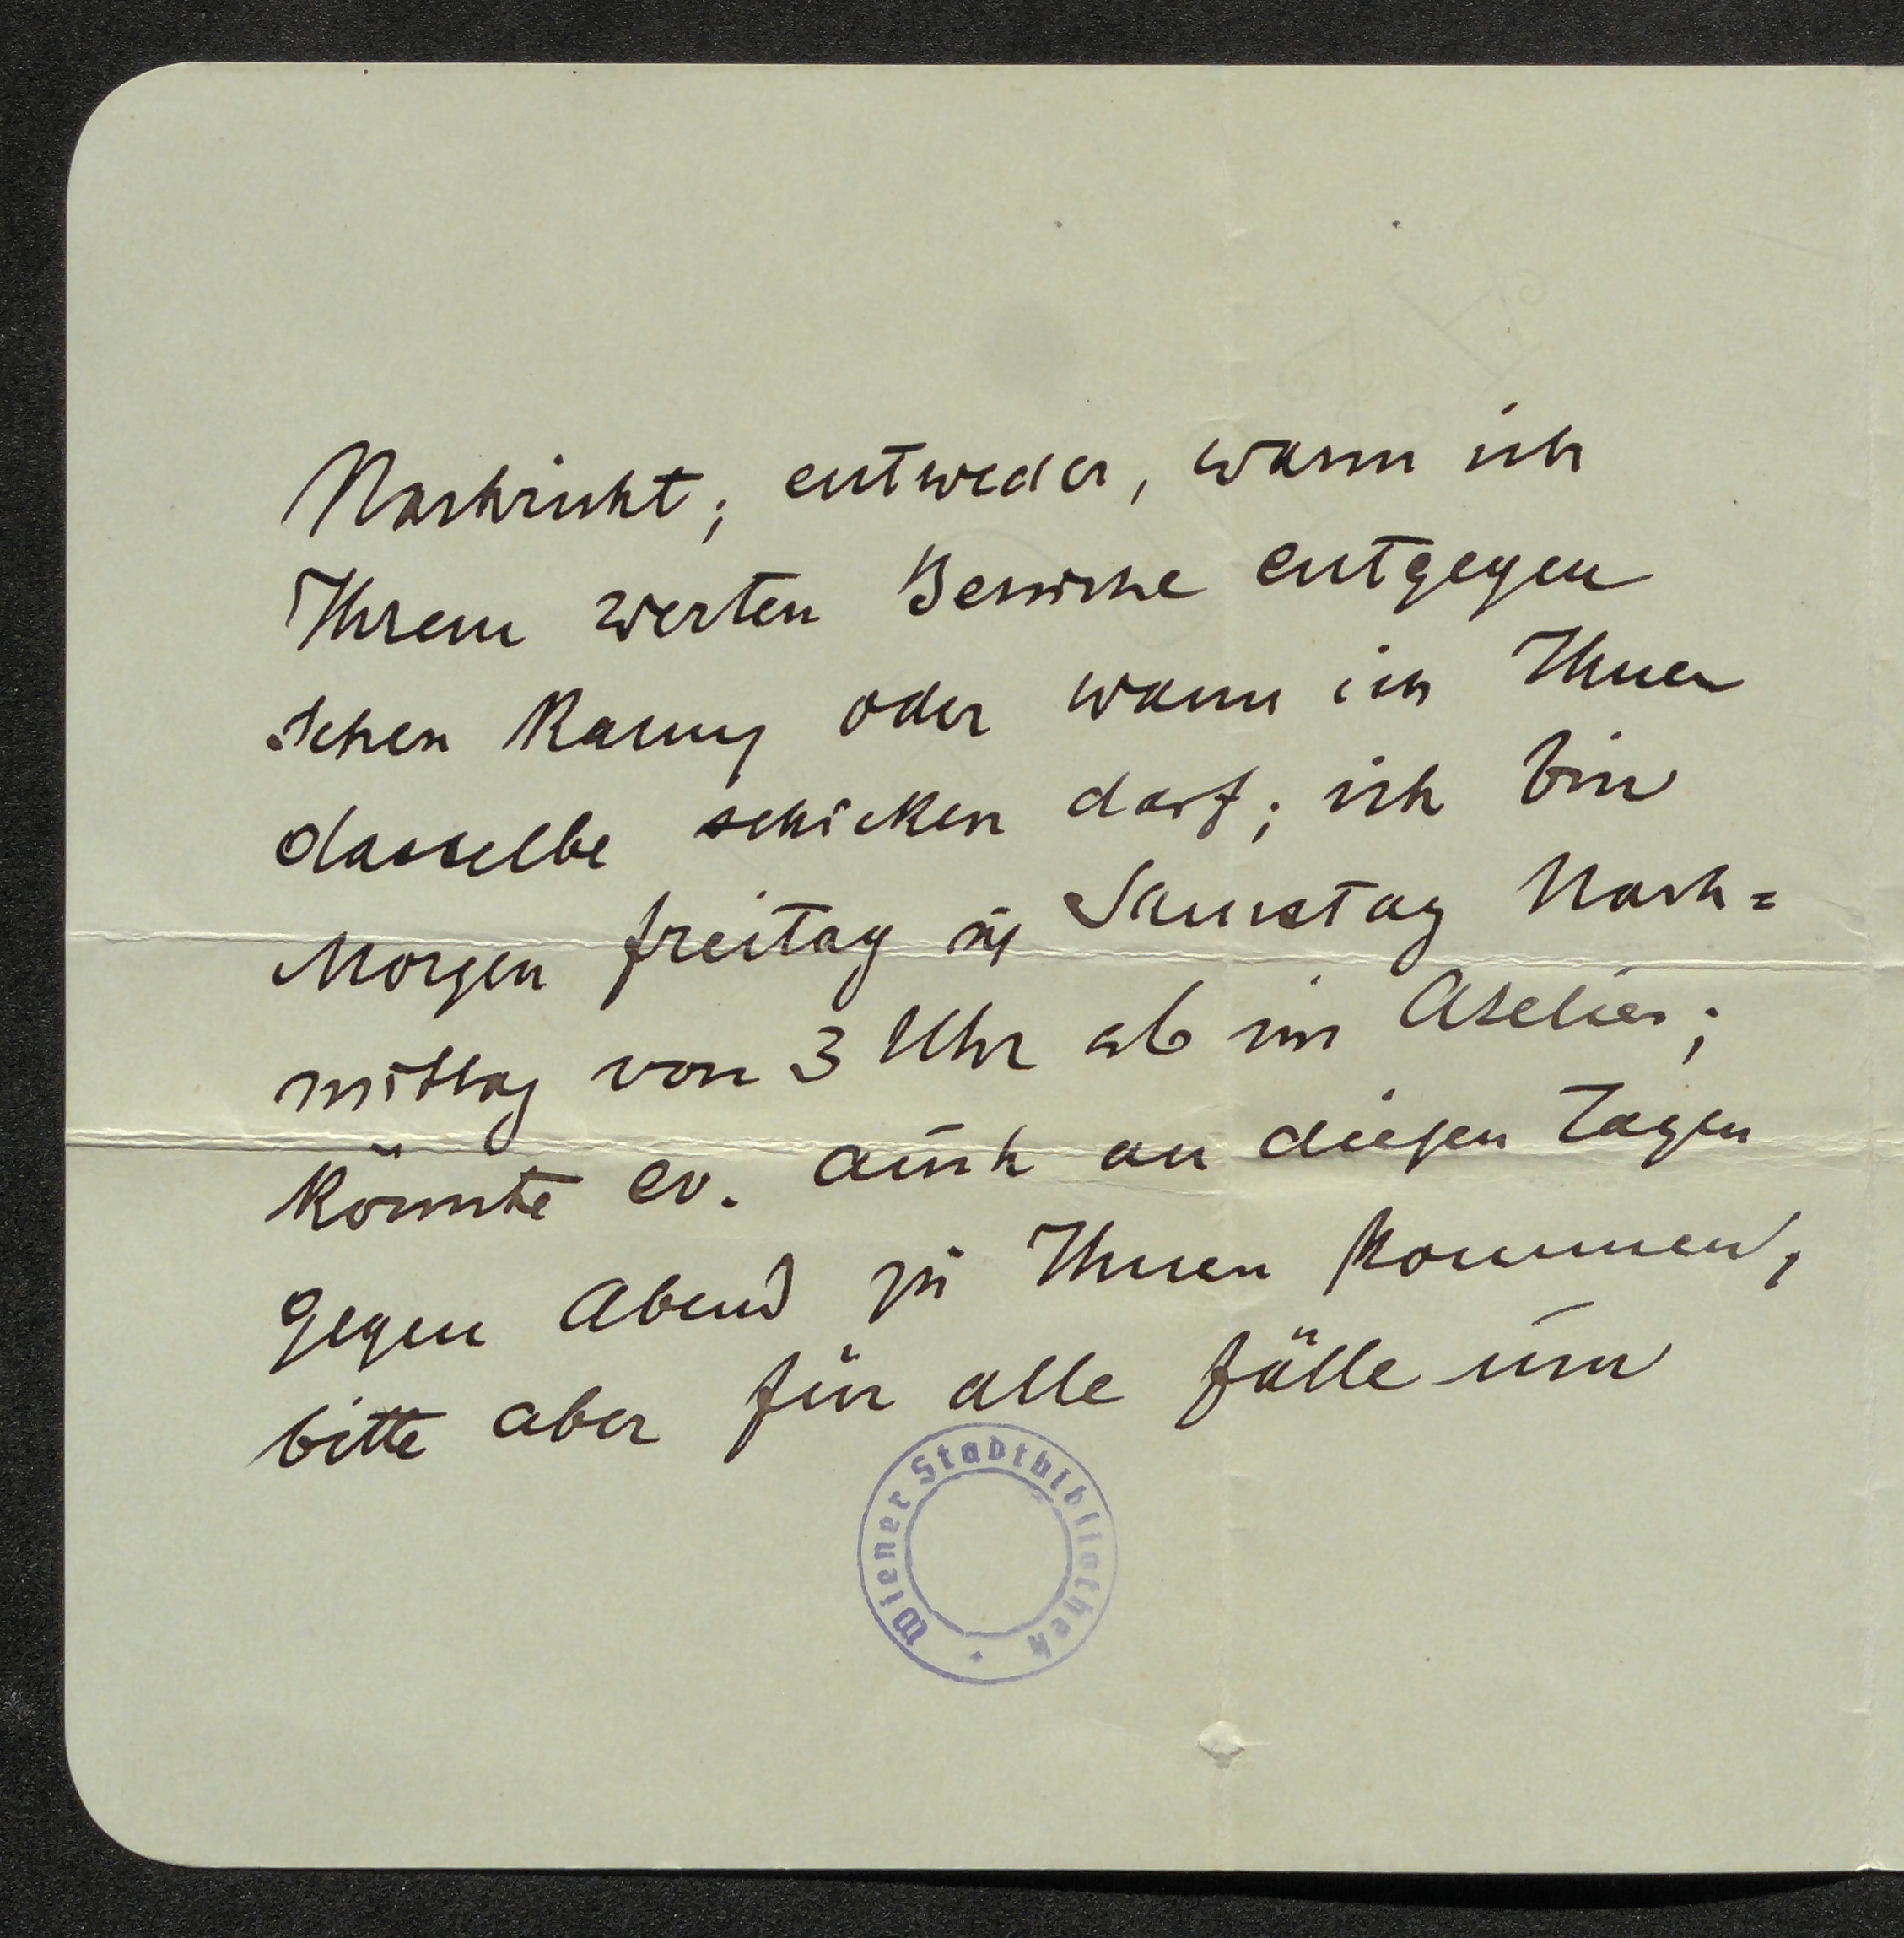 Nachricht; entweder, wann ich
Ihrem werten Besuche entgegen
sehen kann oder wann ich Ihnen
dasselbe schicken darf; ich bin
Morgen Freitag u Samstag Nach=
mittag von 3 Uhr ab im Atelier;
könnte ev. auch an diesen Tagen
gegen Abend zu Ihnen kommen,
bitte aber für alle Fälle um
Wiener Stadtbibliothek